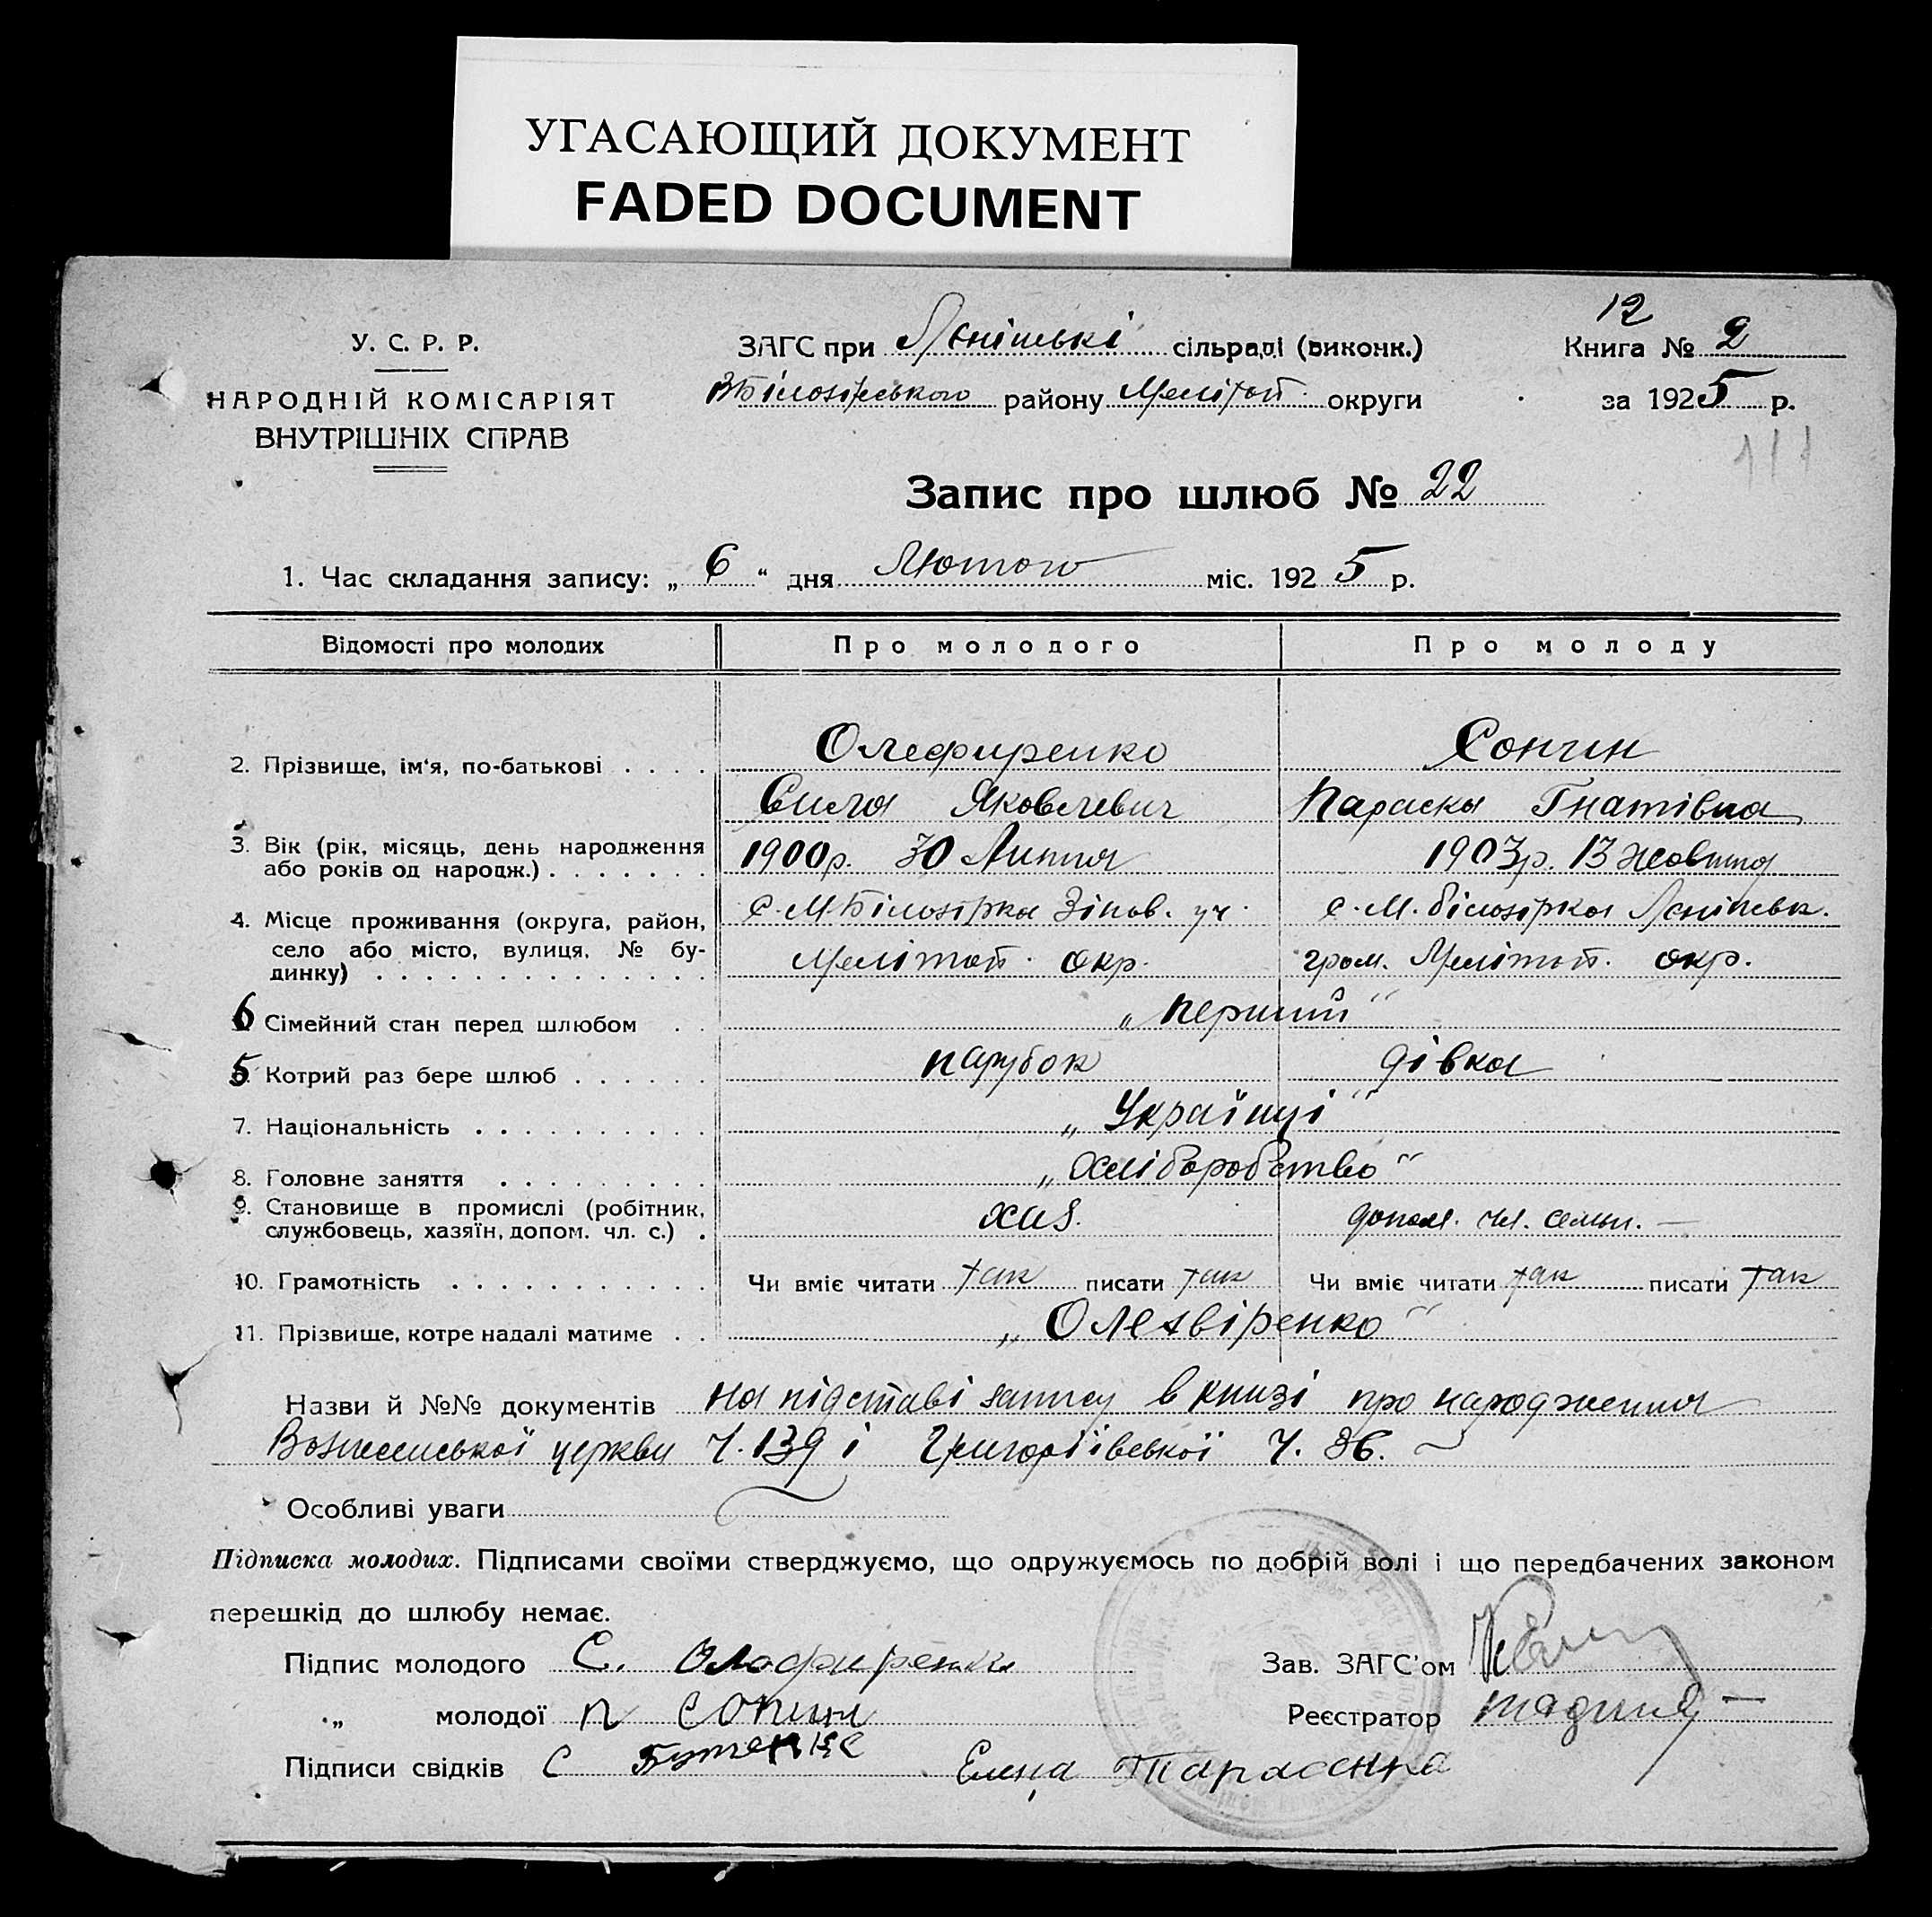 УГАСАЮЩИЙ ДОКУМЕНТ
FADED DOCUMENT
12
У. С. Р. Р.
НАРОДНІЙ КОМІСАРІЯТ
ВНУТРІШНІХ СПРАВ
ЗАГС при сільраді (виконк.)
району Меліт̄оп. округи
Книга № 2
за 1925 р.
111
Запис про шлюб № 22
1. Час складання запису: „ 6 “ дня Лютого міс. 1925 р.
Відомості про молодих Про молодого Про молоду
2. Прізвище, ім‘я, по-батькові . . . . Олефиренко
Сила Яковлевич Параска Гнатівна
3. Вік (рік, місяць, день народження або років од народж.) . . . . . . . 1900р. 30 Липня 1903р. 13 Жовтня
4. Місце проживання (округа, район, село або місто, вулиця, № будинку) . . . . . . . . . . . . . .
с. М-Білозірка Зінов. уч. с. М. Білозірка
Мелітоп. окр. гром. Мелітоп. окр.
6 Сімейний стан перед шлюбом . . „Перший“
5 Котрий раз бере шлюб . . . . . . парубок дівка
7. Національність . . . . . . . . . . „Українці“
8. Головне заняття . . . . . . . . . „Хліборобство“
9. Становище в промислі (робітник, службовець, хазяїн, допом. чл. с.) . хаз. допом. чл. семьи. —
10. Грамотність . . . . . . . . . . . Чи вміє читати так писати так Чи вміє читати так писати так
11. Прізвище, котре надалі матиме . . „Олехвіренко“
Назви й №№ документів На підставі запису в книзі про народження
Вознесенської церкви Ч. 139 і Григоріївської Ч. 36.
Особливі уваги
Підписка молодих. Підписами своїми стверджуємо, що одружуємось по добрій волі і що передбачених законом
перешкід до шлюбу немає.
Підпис молодого С. Олефиренко Зав. ЗАГС'ом
„ молодої П Реєстратор
Підписи свідків С Бутенко Елена Тарасенко